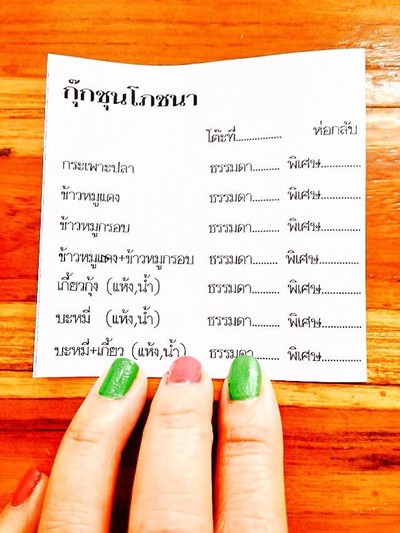 กุ๊กชุนโภชนา
โต๊ะที่............... ห่อกลับ
กระเพาะปลา ธรรมดา......... พิเศษ.............
ข้าวหมูแดง ธรรมดา......... พิเศษ.............
ข้าวหมูกรอบ ธรรมดา......... พิเศษ.............
ข้าวหมูแดง+ข้าวหมูกรอบ ธรรมดา......... พิเศษ.............
เกี๊ยวกุ้ง (แห้ง,น้ำ) ธรรมดา......... พิเศษ.............
บะหมี่ (แห้ง,น้ำ) ธรรมดา......... พิเศษ.............
บะหมี่+เกี๊ยว (แห้ง,น้ำ) ธรรมดา......... พิเศษ.............